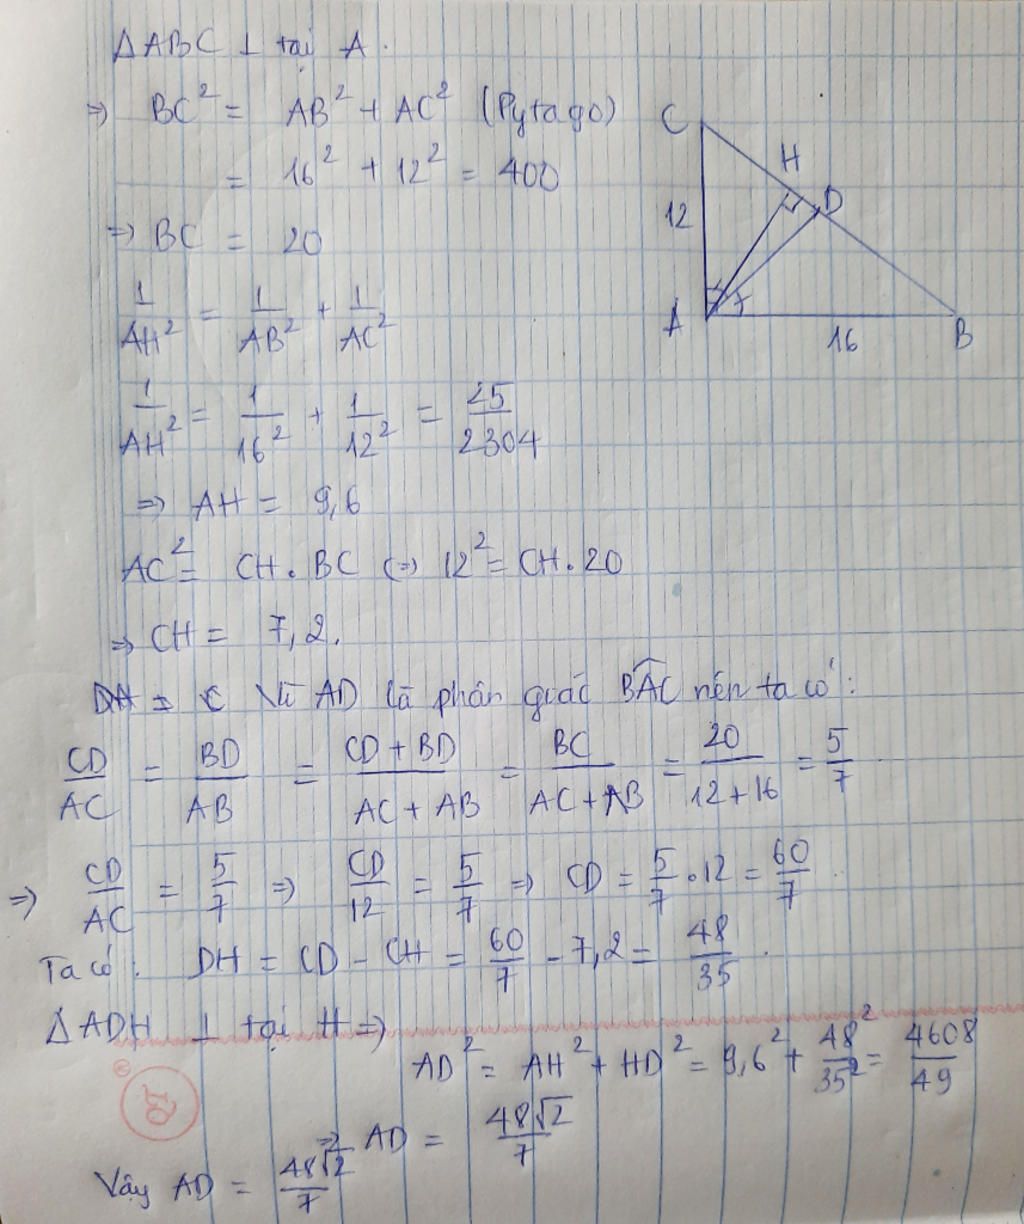 ΔABC ⊥ tại A.
⇒ BC² = AB² + AC² (Pytago)
= 16² + 12² = 400
⇒ BC = 20
C
H
D
12
A
16
B
1/AH² = 1/AB² + 1/AC²
1/AH² = 1/16² + 1/12² = 25/2304
⇒ AH = 9,6
AC² = CH . BC (⇒ 12² = CH . 20
⇒ CH = 7,2.
Vì AD là phân giác BAC nên ta có:
CD/AC = BD/AB = CD + BD/AC + AB = BC/AC + AB = 20/12+16 = 5/7
⇒ CD/AC = 5/7 ⇒ CD/12 = 5/7 ⇒ CD = 5/7 . 12 = 60/7
Ta có: DH = CD - CH = 60/7 - 7,2 = 48/35.
ΔADH ⊥ tại H ⇒
AD² = AH² + HD² = 9,6² + 48²/35² = 4608/49
⇒ AD = 48√2/7
Vậy AD = 48√2/7